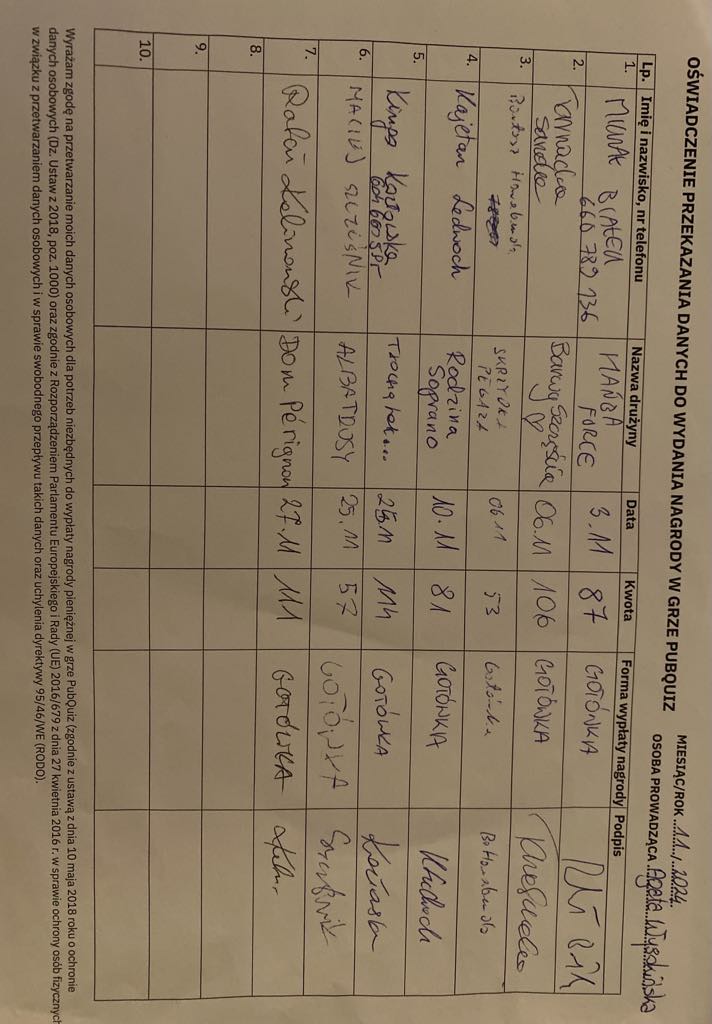 OŚWIADCZENIE PRZEKAZANIA DANYCH DO WYDANIA NAGRODY W GRZE PUBQUIZ
MIESIĄC/ROK ...11.../...2024.
OSOBA PROWADZĄCA ..Agata
Lp. Imię i nazwisko, nr telefonu Nazwa drużyny Data Kwota Forma wypłaty nagrody Podpis
1. BIAŁEK 660 789 136 MAŃBA FORCE 3.11 87 GOTÓWKA
2. Sandra Barwy Szczęścia ♡ 06.11 106 GOTÓWKA
3. Bartosz SKRZYDŁA PEGAZA 06.11 53 Gotówka
4. Kajetan Ledwoch Rodzina Soprano 10.11 81 GOTÓWKA
5. Kinga Trochę tak... 25.11 114 GOTÓWKA
6. MACIEJ SZCZEŚNIK ALBATROSY 25.11 57 GOTÓWKA
7. Rafał Kalinowski Dom Pérignon 27.11 111 GOTÓWKA
8.
9.
10.
Wyrażam zgodę na przetwarzanie moich danych osobowych dla potrzeb niezbędnych do wypłaty nagrody pieniężnej w grze PubQuiz (zgodnie z ustawą z dnia 10 maja 2018 roku o ochronie
danych osobowych (Dz. Ustaw z 2018, poz. 1000) oraz zgodnie z Rozporządzeniem Parlamentu Europejskiego i Rady (UE) 2016/679 z dnia 27 kwietnia 2016 r. w sprawie ochrony osób fizycznych
w związku z przetwarzaniem danych osobowych i w sprawie swobodnego przepływu takich danych oraz uchylenia dyrektywy 95/46/WE (RODO).